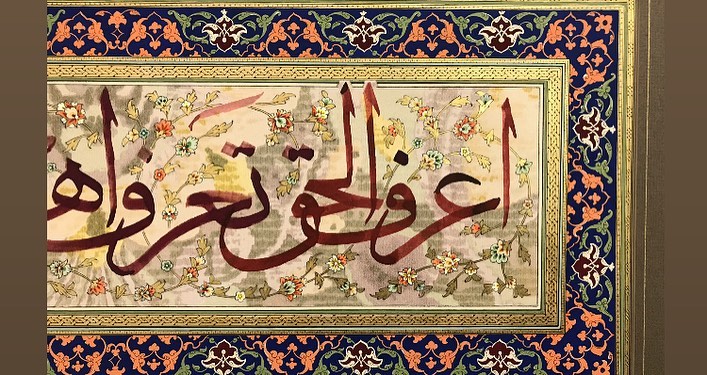 اعرف الحق تعرف اه